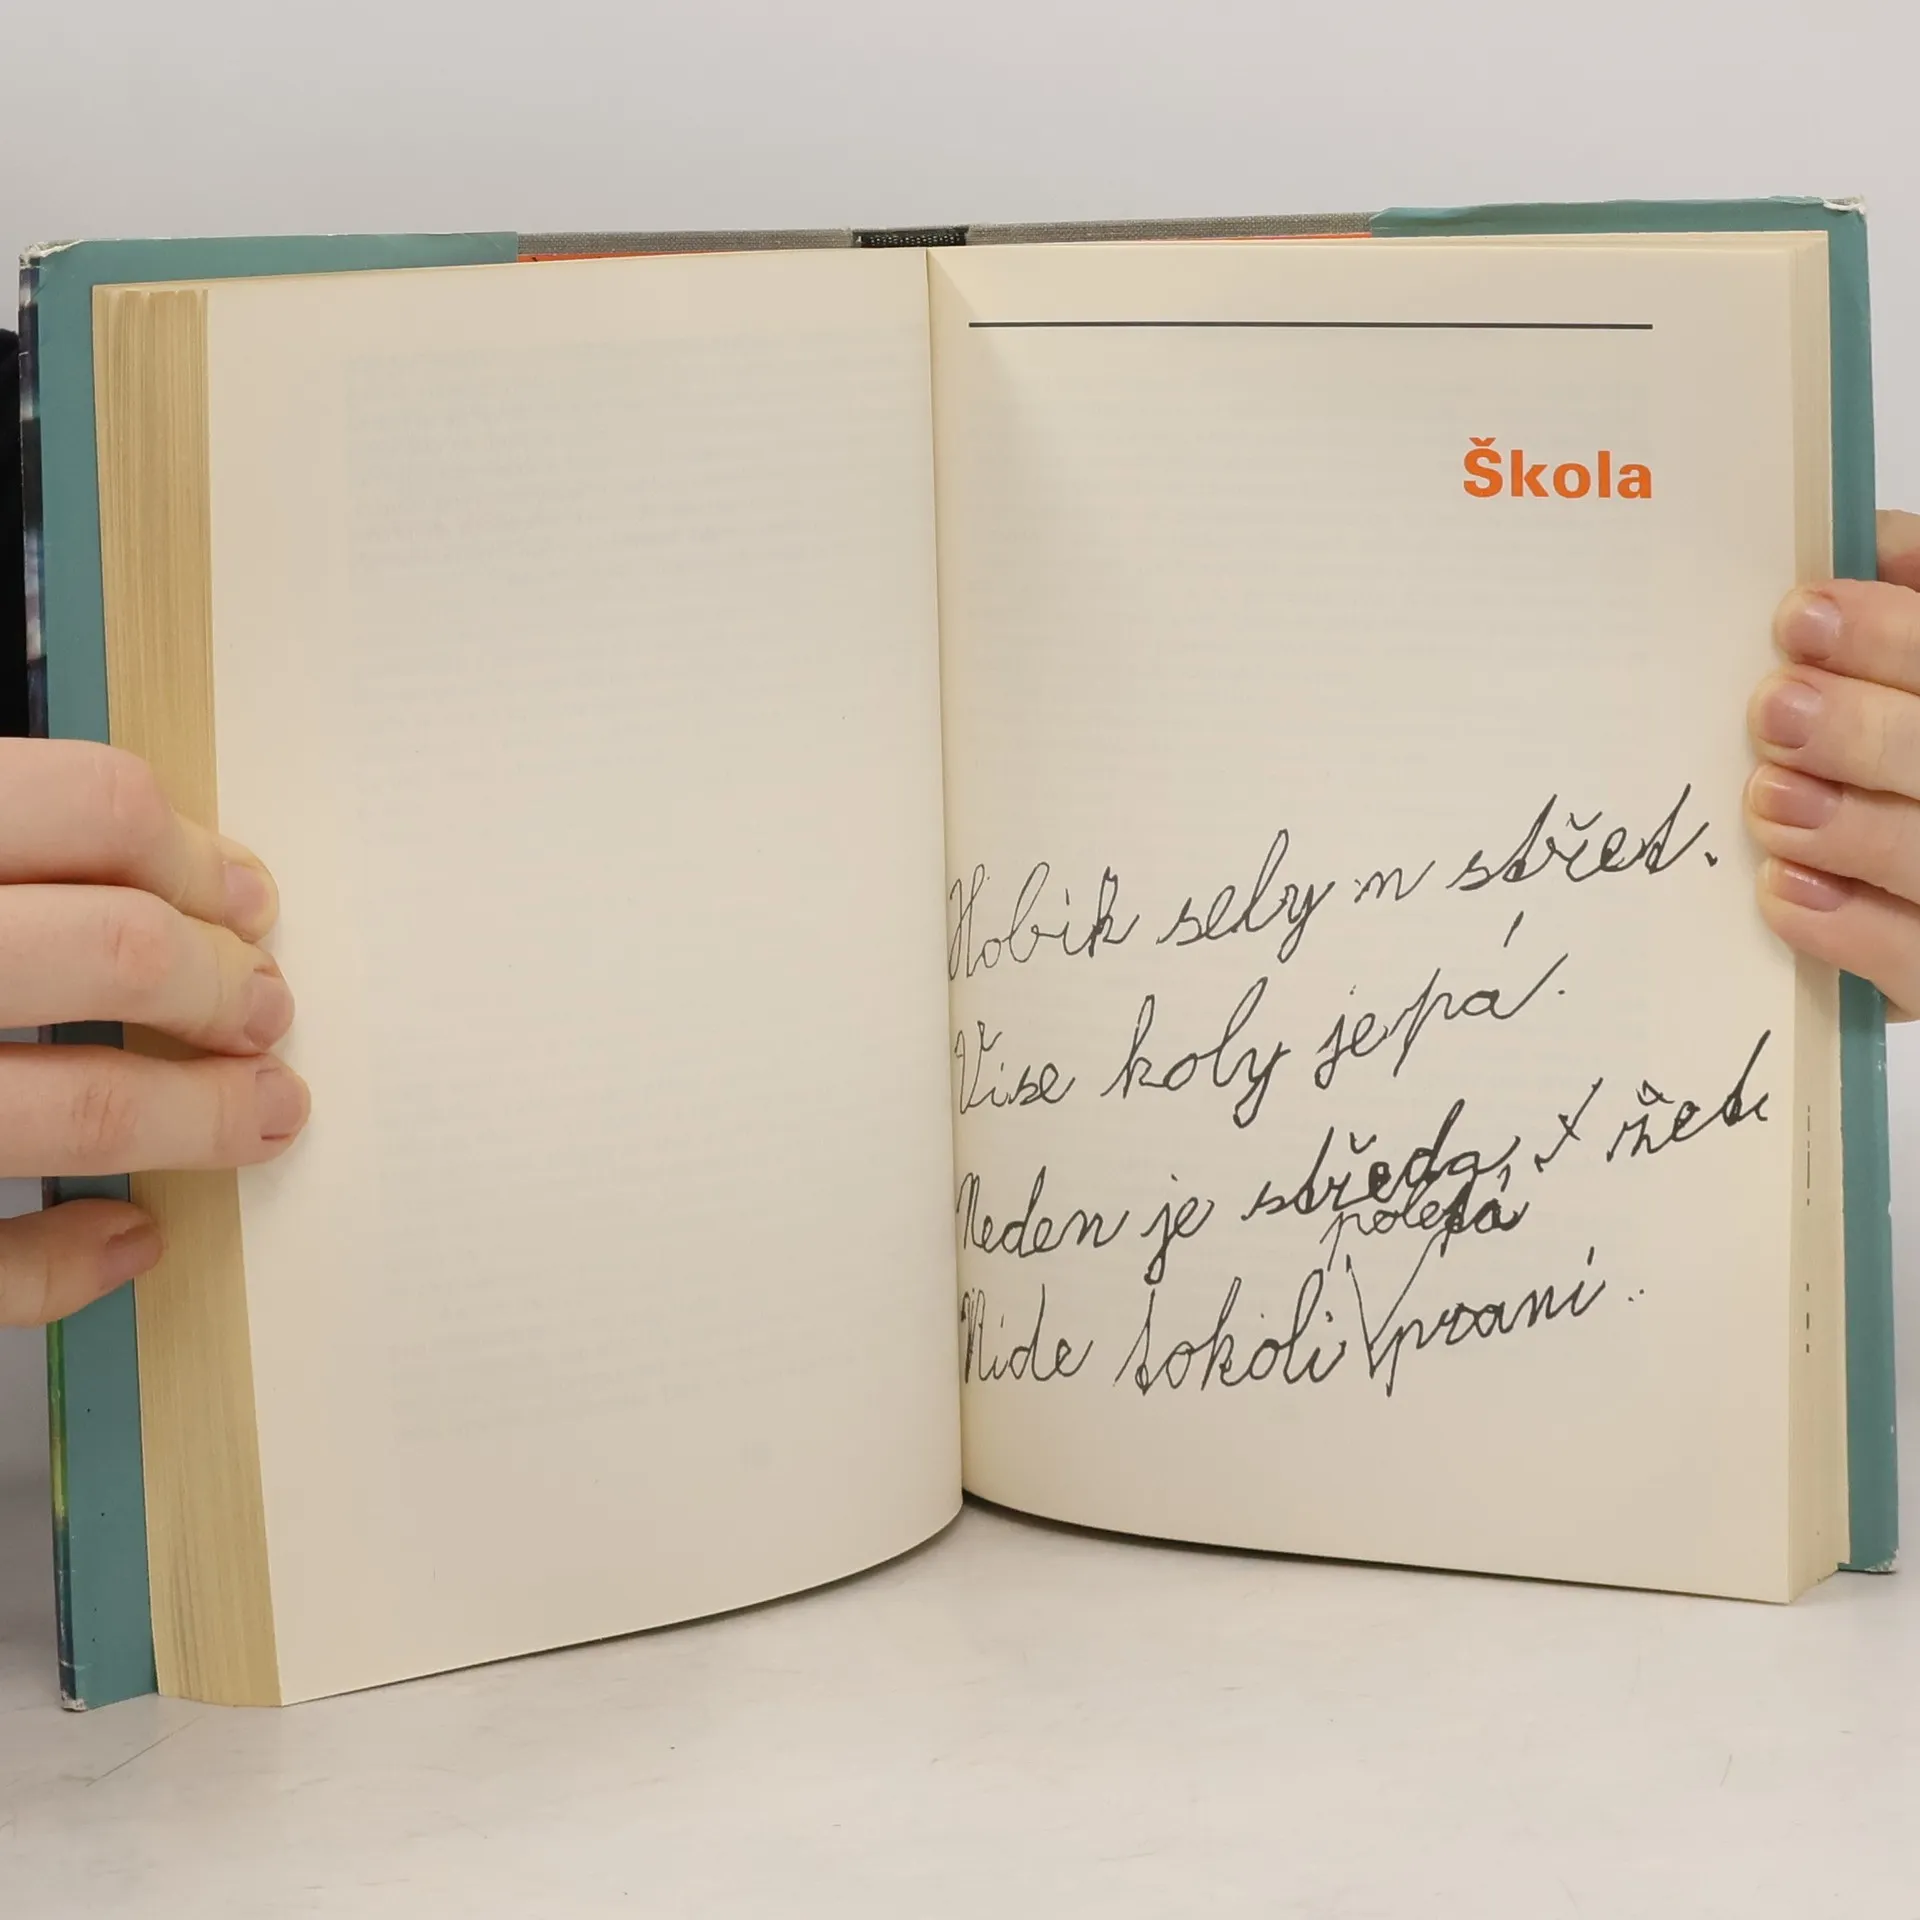 Škola
Hobik sely m střet.
Više koly jepá.
Neden je středa, X
poletá
Nide sokoli praní..